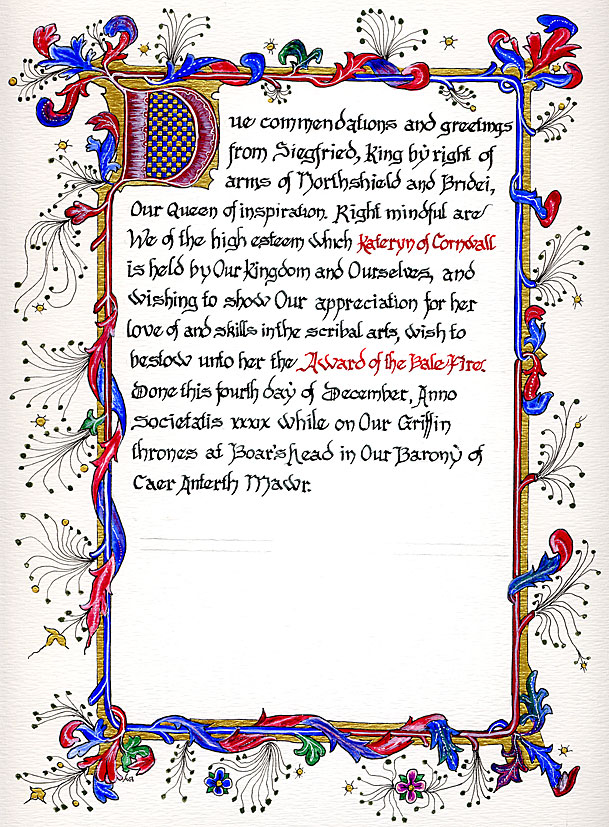 Due commendations and greetings
from Siegfried, King by right of
arms of Northshield and Bridei,
Our Queen of inspiration. Right mindful are
We of the high esteem which Kateryn of Cornwall
is held by Our Kingdom and Ourselves, and
wishing to show Our appreciation for her
love of and skills in the scribal arts, wish to
bestow unto her the Award of the Bale-Fire.
Done this fourth day of December, Anno
Societatis xxxx while on Our Griffin
thrones at Boar's head in Our Barony of
Caer Anterth Mawr.